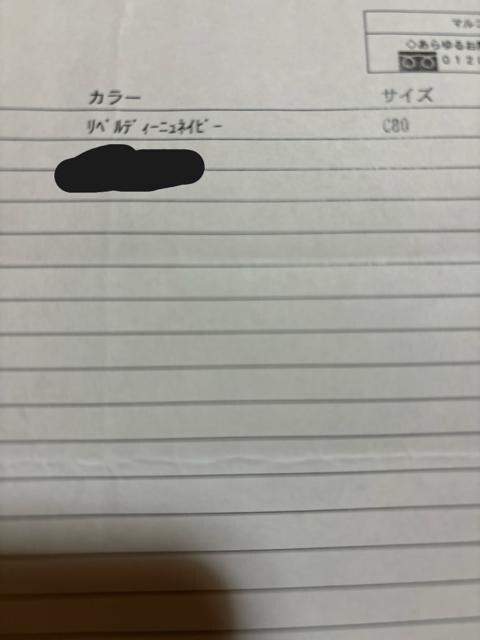 マルコ
◇あらゆるお問
0120
カラー
サイズ
ﾘﾍﾞﾙﾃﾞｨｰﾆｭﾈｲﾋﾞｰ
C80